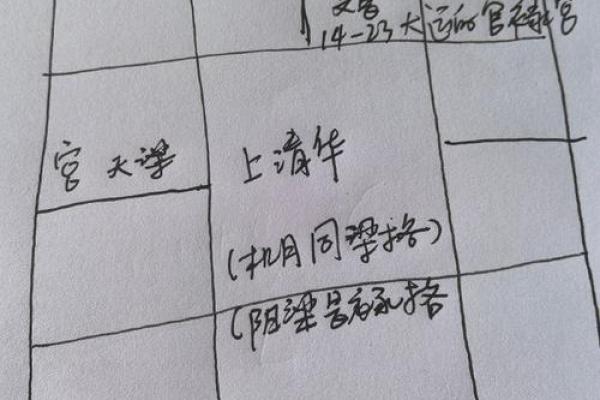 文昌
14-23大运的官禄宫
宫 天梁
上清华
(机月同梁格)
(阳梁昌禄格